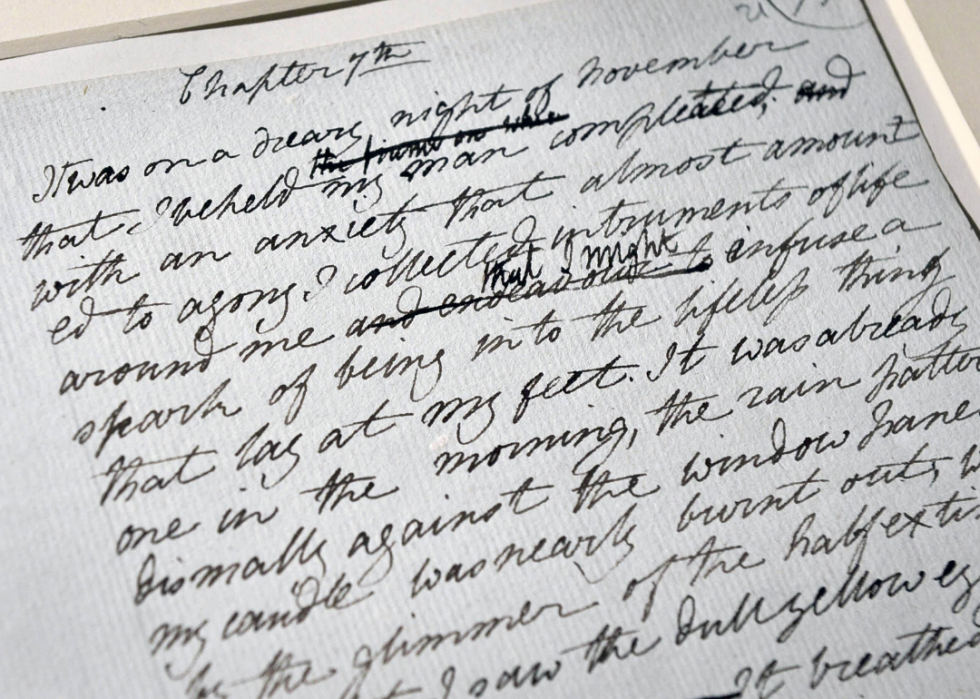 21
Chapter 7th
It was on a dreary night of November
that I beheld the frame on whic my man compleated, and
with an anxiety that almost amount
ed to agony I collected instruments of life
around me and endeavour to that I might infuse a
spark of being into the lifeless thing
that lay at my feet. It was already
one in the morning, the rain patter
dismally against the window pane
my candle was nearly burnt out,
by the glimmer of the half exti
I saw the dull yellow ey
It breathed